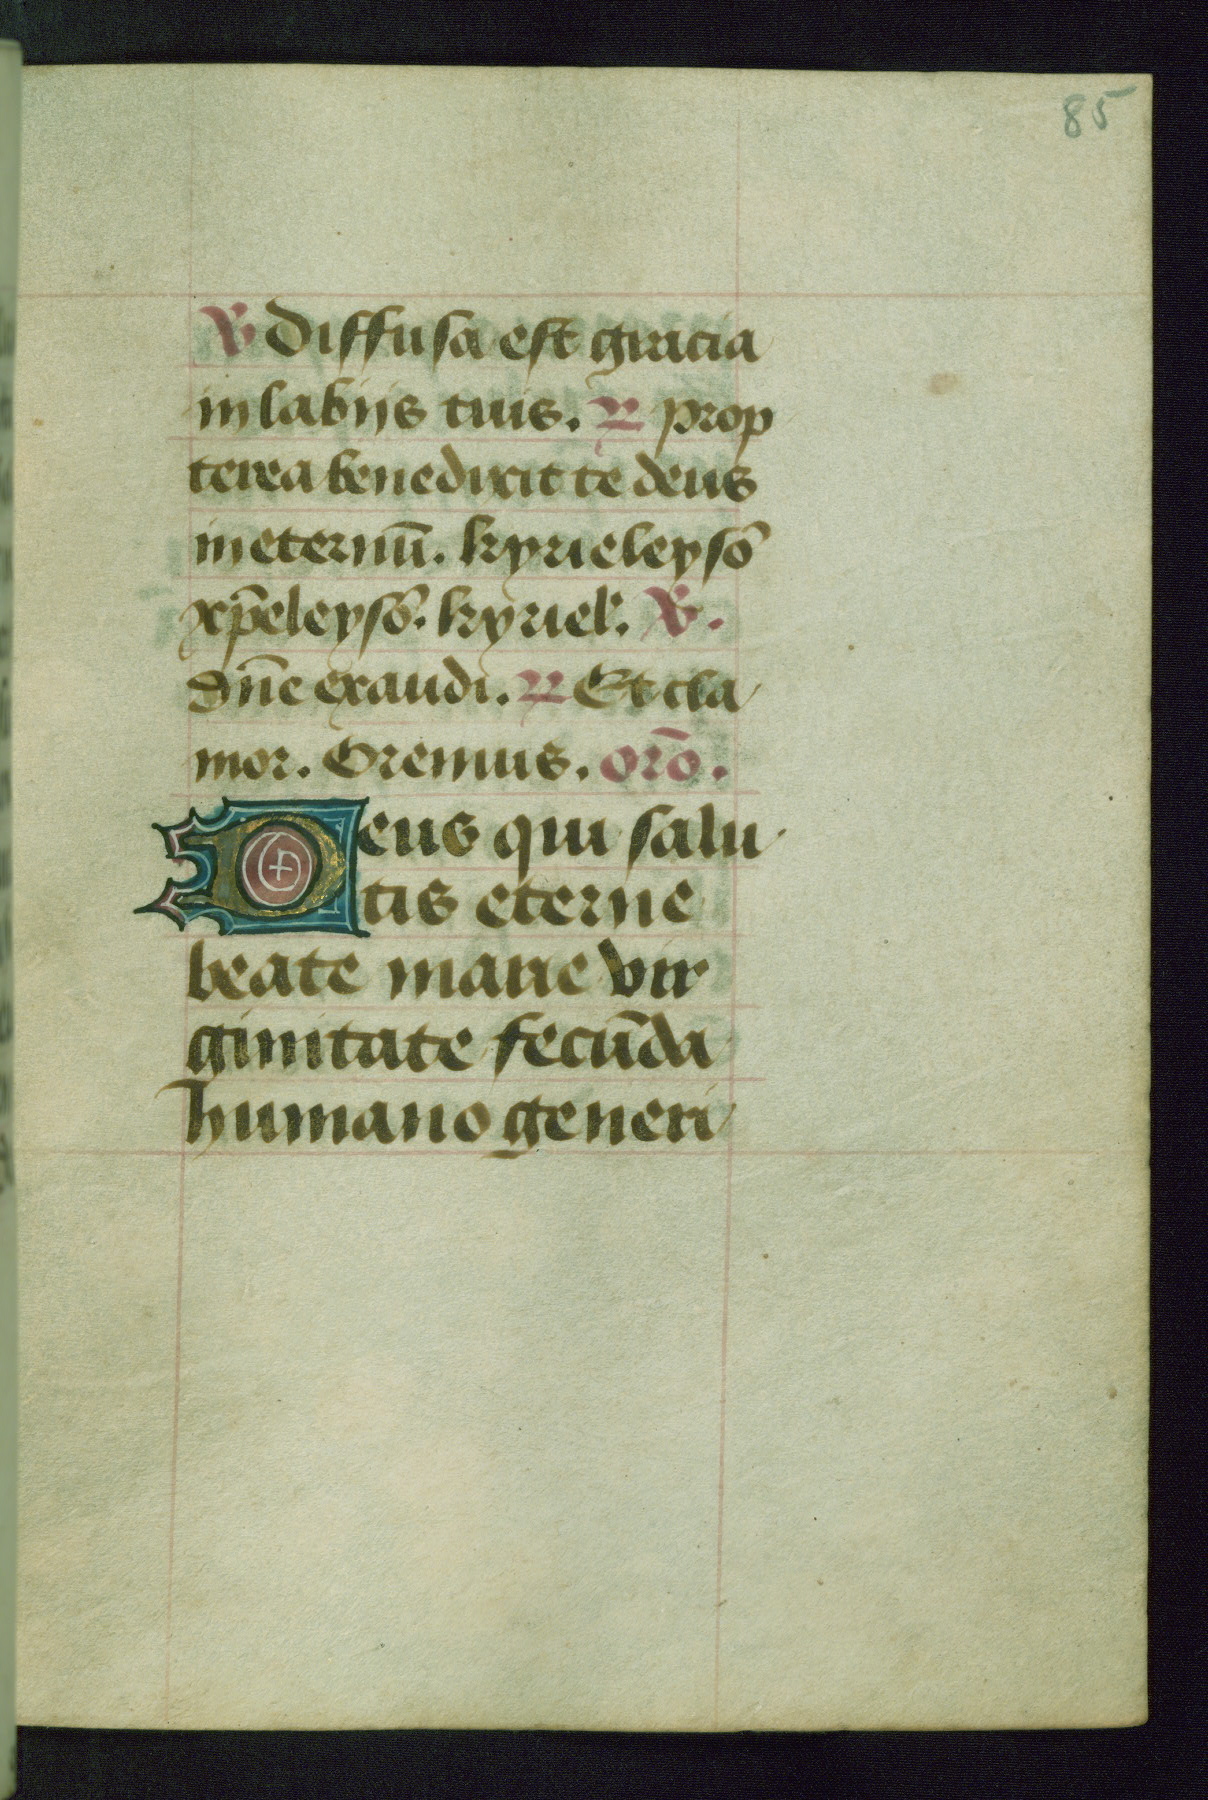 85
℣ Diffusa est gracia
in labijs tuis. ℟ prop
terea benedixit te deus
in eternū. kyrieleysō
xp̄eleysō. kyriel'. ℣.
dn̄e exaudi. ℟ Et cla
mor. Oremus. orō.
Deus qui salu
tis eterne
beate marie vir
ginitate fecūda
humano generi